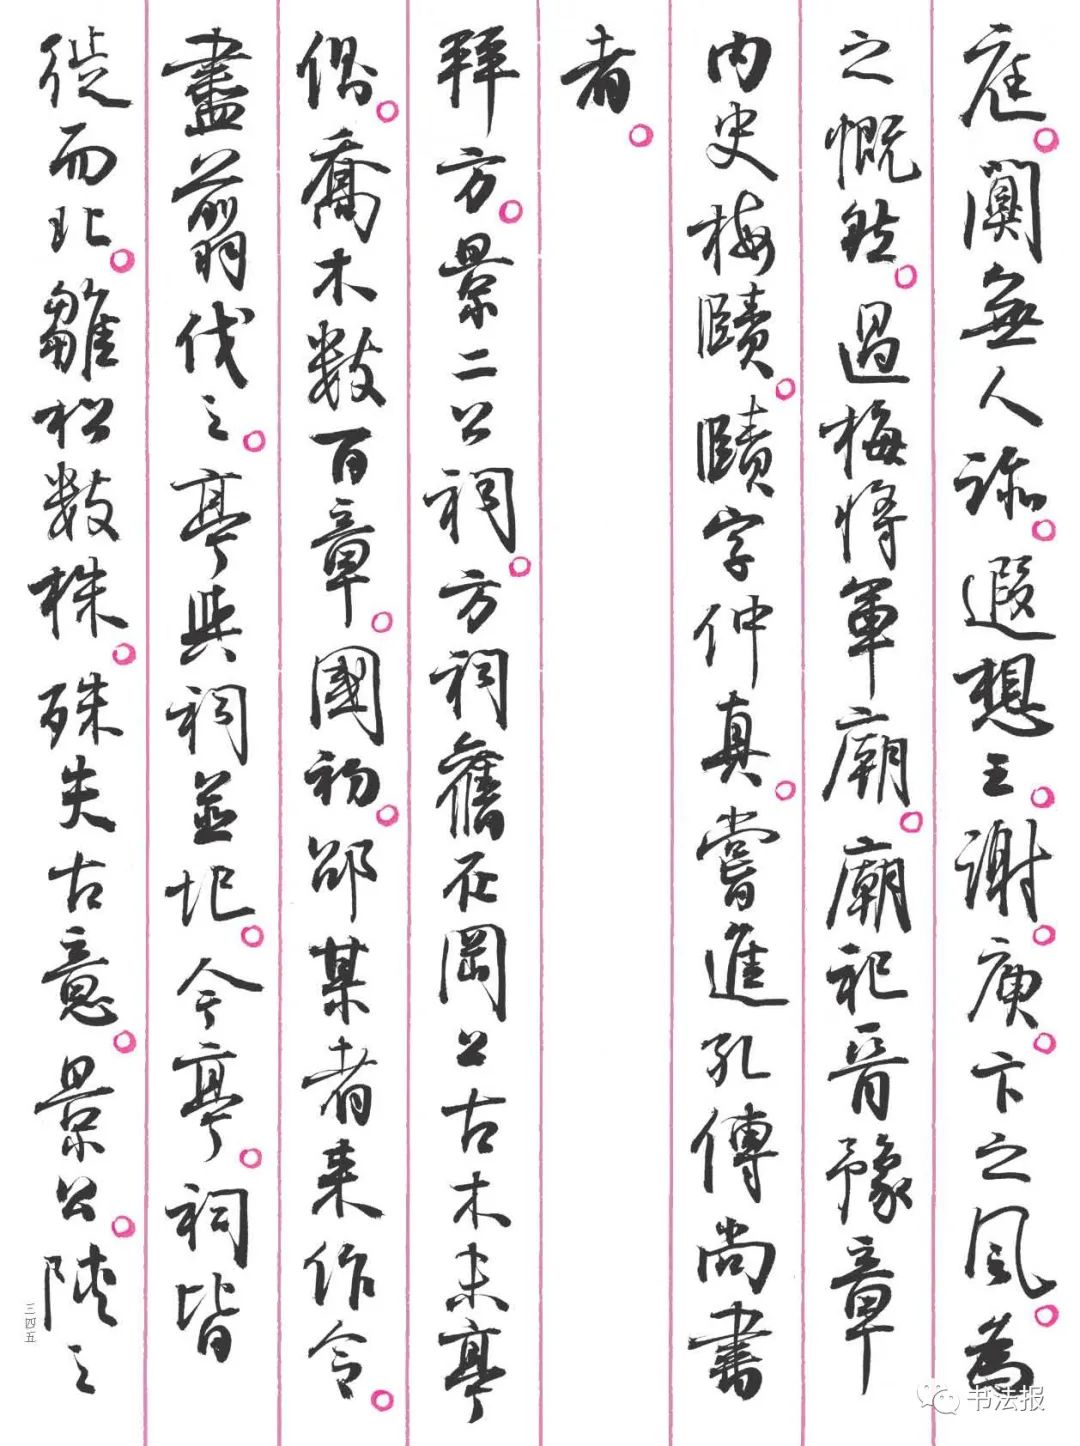 庭。闃無人跡。遐想王。謝。庾。卞之風。為
之慨然。過梅將軍廟。廟祀晉豫章
内史梅賾。賾字仲真。嘗進孔傳尚書
者。
拜方。景二公祠。方祠舊在岡公古木末亭
側。喬木數百章。國初。邵某者来作令。
盡翦伐之。亭與祠並圮。今亭。祠皆
徙而北。雛松數株。殊失古意。景公。陝之
三四五
书法报